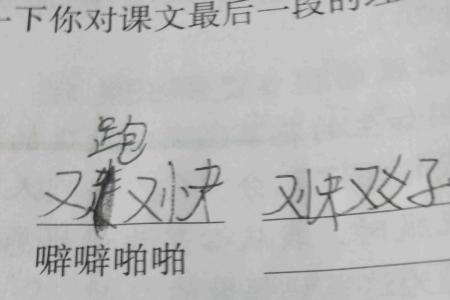 一下你对课文最后一段的
跑
又又快 又快又好
噼噼啪啪